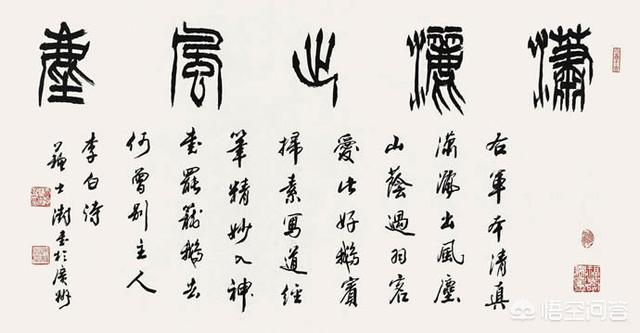 瀟灑出風塵
右軍本清真
瀟灑出風塵
山蔭過羽客
愛此好鵝賓
掃素寫道經
筆精妙入神
書罷籠鵝去
何曾別主人
李白詩
蘇士澍書於廣州
悟空问答